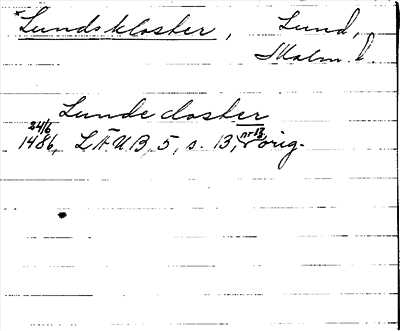 *Lundskloster, Lund,
Malm. l.
Lunde closter
24/6
1486, LÄUB, 5, s. 13, nr 13, orig.